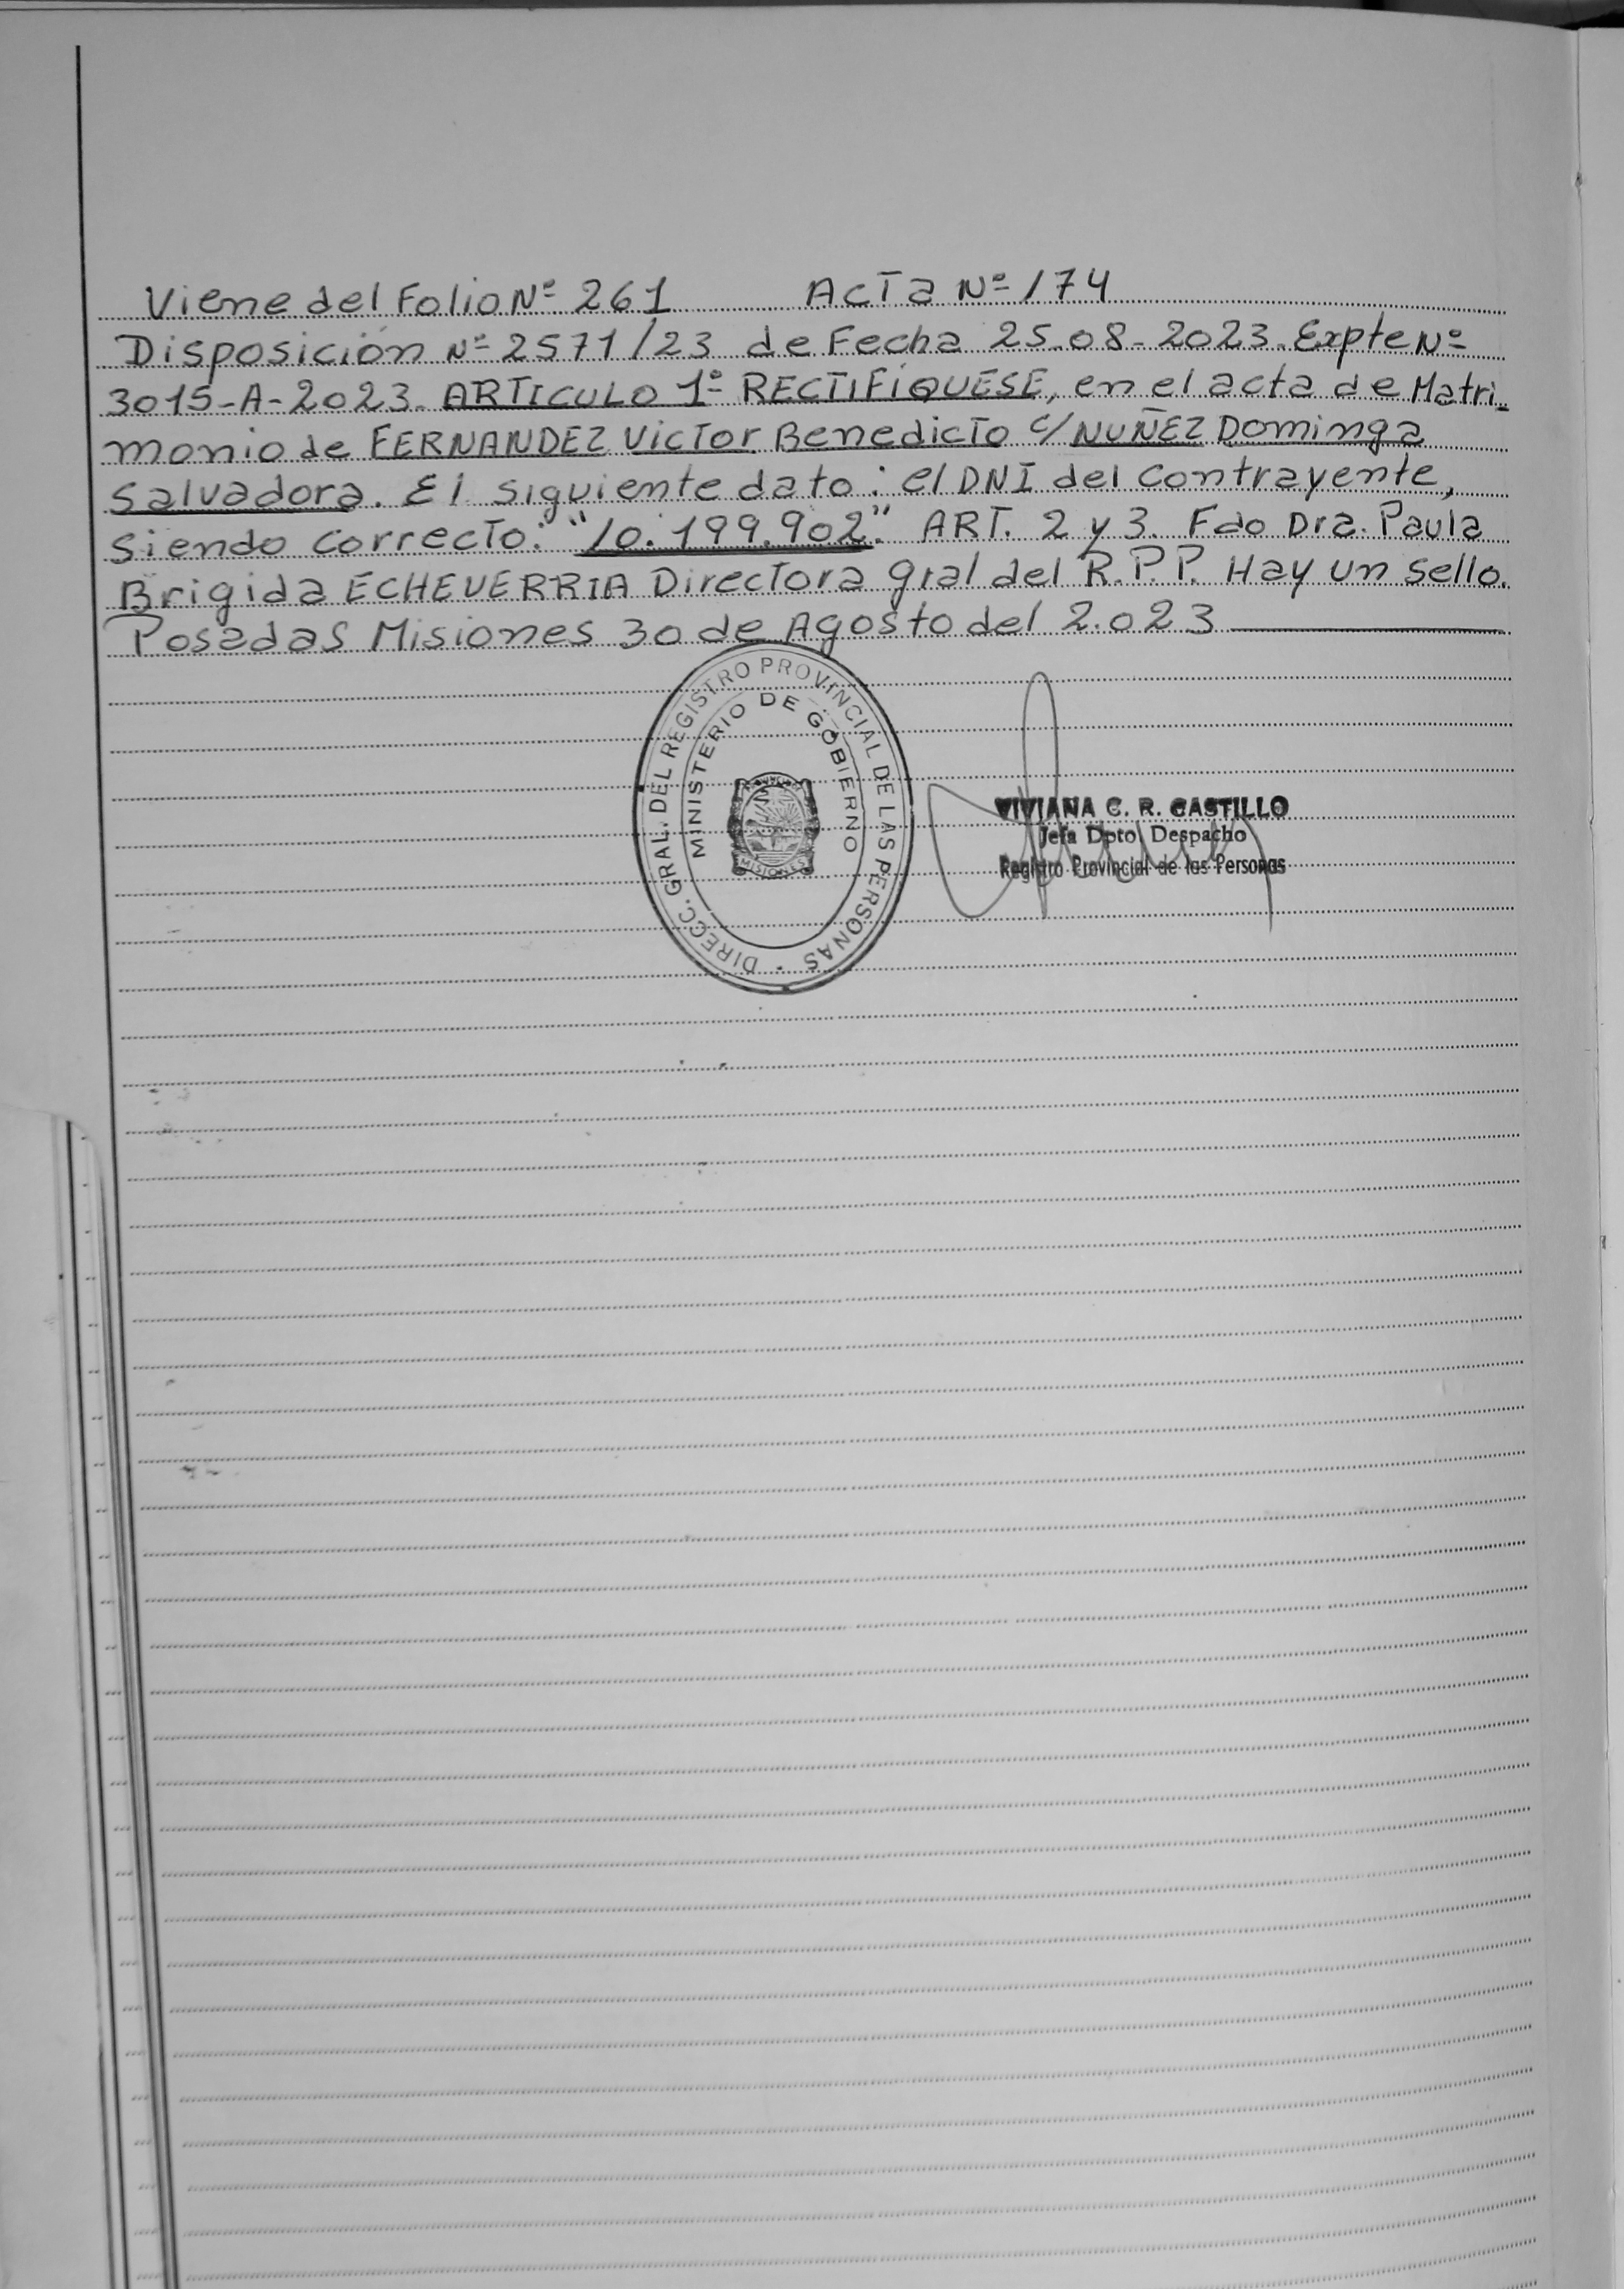 Viene del Folio Nº 261 Acta Nº 174
Disposición Nº 2571/23 de Fecha 25-08-2023. Expte Nº
3015-A-2023. ARTICULO 1º RECTIFIQUESE, en el acta de Matri-
monio de FERNANDEZ Victor Benedicto c/ NUÑEZ Dominga
Salvadora. El siguiente dato: el DNI del contrayente,
siendo correcto: "10.199.902". ART. 2 y 3. Fdo Dra. Paula
Brigida ECHEVERRIA Directora gral del R.P.P. Hay un sello.
Posadas Misiones 30 de Agosto del 2.023
DIRECC. GRAL. DEL REGISTRO PROVINCIAL DE LAS PERSONAS
MINISTERIO DE GOBIERNO
MISIONES
VIVIANA C. R. CASTILLO
Jefa Dpto Despacho
Registro Provincial de las Personas